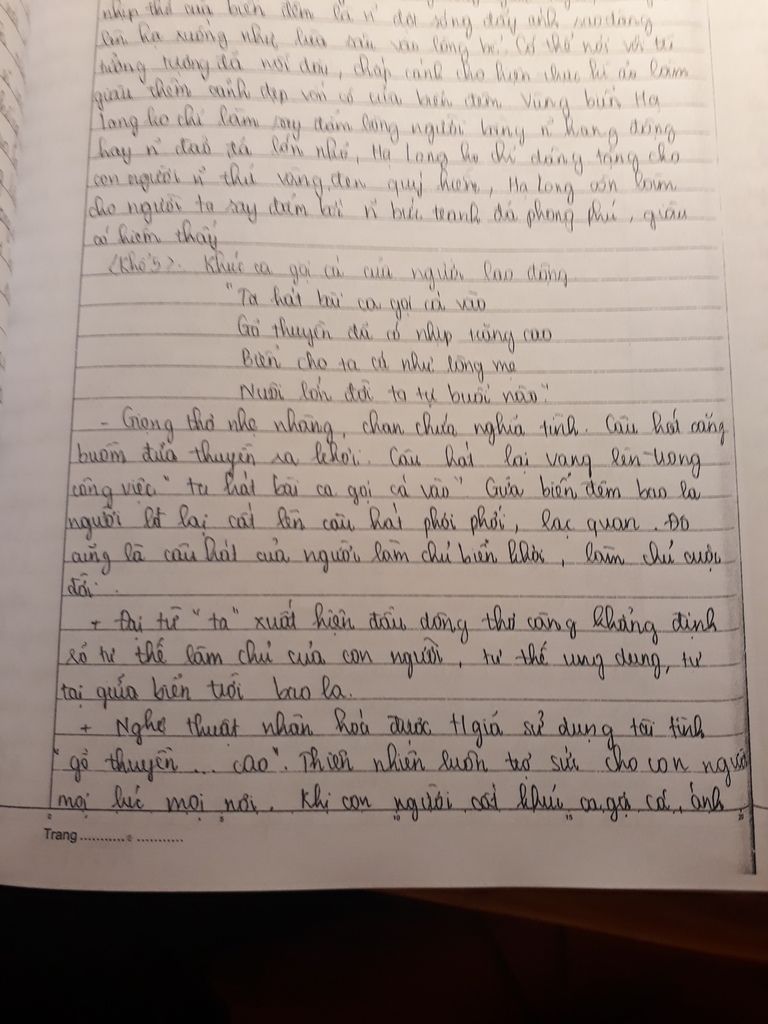 nhịp thở của biển đêm là n² đợt sóng đẩy ánh sao đông
lên hạ xuống như lùa sâu vào lòng bể. Có thể nói với trí
tưởng tượng đã nối dài, chắp cánh cho hiện thực kì ảo làm
giàu thêm cảnh đẹp vốn có của biển đêm. Vùng biển Hạ
Long ko chỉ làm say đắm lòng người bằng n² hang động
hay n² đảo đá lớn nhỏ, Hạ Long ko chỉ dâng tặng cho
con người n² thứ vàng đen quý hiếm, Hạ Long còn làm
cho người ta say đắm bởi n² bức tranh đá phong phú, giàu
có hiếm thấy
<Khổ 5>. Khúc ca gọi cá của người lao động
"Ta hát bài ca gọi cá vào
Gõ thuyền đã có nhịp trăng cao
Biển cho ta cá như lòng mẹ
Nuôi lớn đời ta tự buổi nào"
- Giọng thơ nhẹ nhàng, chan chứa nghĩa tình. Câu hát căng
buồm đưa thuyền ra khơi. Câu hát lại vang lên trong
công việc "ta hát bài ca gọi cá vào" Giữa biển đêm bao la
người lđ lại cất lên câu hát phơi phới, lạc quan. Đó
cũng là câu hát của người làm chủ biển khơi, làm chủ cuộc
đời.
+ Đại từ "ta" xuất hiện đầu dòng thơ càng khẳng định
rõ tư thế làm chủ của con người, tư thế ung dung, tự
tại giữa biển trời bao la.
+ Nghệ thuật nhân hoá được t/giả sử dụng tài tình
"gõ thuyền ... cao". Thiên nhiên luôn trợ sức cho con người
mọi lúc mọi nơi. Khi con người cất khúc ca gọi cá, ánh
Trang